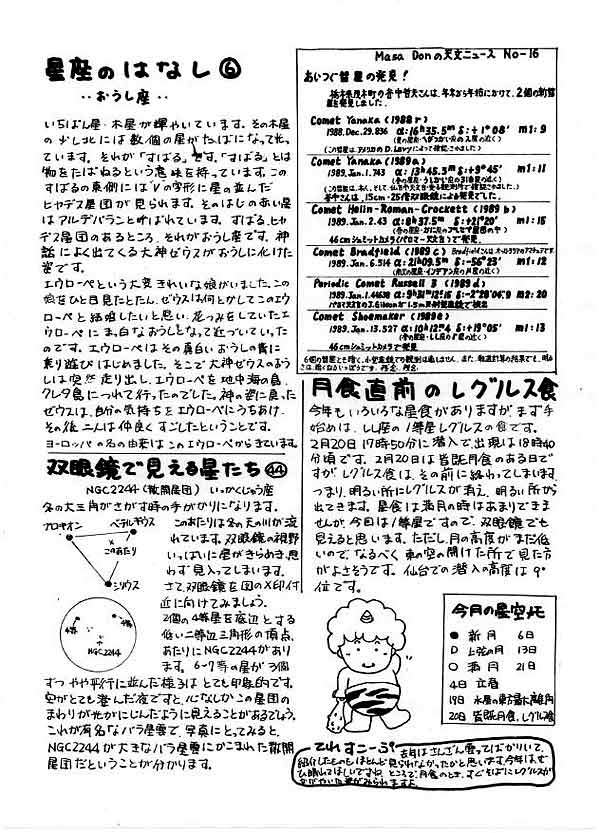 星座のはなし⑥
‥おうし座‥
いちばん星・木星が輝やいています。その木星
の少し北には数個の星がたばになって光っ
ています。それが「すばる」です。「すばる」とは
物をたばねるという意味を持っています。この
すばるの東側にはVの字形に星の並んだ
ヒヤデス星団が見られます。そのはじのあい星
はアルデバランと呼ばれています。すばる、ヒヤ
デス星団のあるところ、それがおうし座です。神
話によく出てくる大神ゼウスがおうしに化けた
姿です。
エウローペという大変きれいな娘がいました。この
娘をひと目見たとたん、ゼウスは何とかしてこのエウロ
ーペと結婚したいと思い、花つみをしていたエ
ウローペに、ま、白なおうしとなって近づいていった
のです。エウローペはその真白いおうしの背に
乗り遊びはじめました。そこで大神ゼウスのおう
しは突然走り出し、エウローペを地中海の島、
クレタ島につれて行ったのでした。神の姿に戻った
ゼウスは、自分の気持ちをエウローペにうちあけ、
その後二人は仲良くすごしたということです。
ヨーロッパの名の由来はこのエウローペからきています。
双眼鏡で見える星たち㊹
NGC2244(散開星団) いっかくじゅう座
冬の大三角がさがす時の手がかりになります。
プロキオン
ベテルギウス
×
このあたり
シリウス
4等
4等
NGC2244
このあたりは冬の天の川が流
れています。双眼鏡の視野
いっぱいに星がきらめき、思
わず見入ってしまいます。
さて、双眼鏡を図の×印付
近に向けてみましょう。
2個の4等星を底辺とする
低い二等辺三角形の頂点、
あたりにNGC2244があり
ます。6~7等の星が3個
ずつやや平行に並んだ様子はとても印象的です。
空がとても澄んだ夜ですと、心なしかこの星団の
まわりが光がにじんだように見えることがあるでしょう。
これが有名なバラ星雲で、写真にとってみると、
NGC2244が大きなバラ星雲にかこまれた散開
星団だということが分かります。
Masa Donの天文ニュース No-16
あいつぐ彗星の発見!
栃木県茂木町の谷中哲夫さんは、年末から年始にかけて、2個の新彗
星を発見しました。
Comet Yanaka (1988r)
1988.Dec.29.836 α:16h35.5m δ:+1°08′ m1:9
(この彗星は、アメリカのD.Levyによって確認されました。)
Comet Yanaka (1989a)
1989.Jan.1.743 α:13h45.5m δ:+9°45′ m1:11
谷中さんは、15cm・25倍双眼鏡による発見でした。
Comet Helin-Roman-Crockett (1989b)
1989.Jan.2.43 α:8h37.5m δ:+21°20′ m1:15
46cmシュミットカメラ(パロマー天文台)で発見
Comet Bradfield (1989c)
1989.Jan.6.514 α:21h09.5m δ:-56°23′ m1:12
Periodic Comet Russell 3 (1989d)
1989.Jan.1.44638 m2:20
Comet Shoemaker (1989e)
1989.Jan.13.527 α:10h12.4m δ:+19°05′ m1:13
46cmシュミットカメラで発見
月食直前のレグルス食
今年もいろいろな星食がありますがまず手
始めは、しし座の1等星レグルスの食です。
2月20日17時50分に潜入で、出現は18時40
分頃です。2月20日は皆既月食のある日で
すが、レグルス食は、その前に終わってしまいます。
つまり、明るい所にレグルスが消え、明るい所から
出てきます。星食は満月の時はあまりできま
せんが、今回は1等星ですので、双眼鏡でも
見えると思います。ただし、月の高度がまだ低
いので、なるべく東の空の開けた所で見た方
がよさそうです。仙台での潜入の高度は9°
位です。
今月の星空メモ
● 新月 6日
D 上弦の月 13日
○ 満月 21日
4日 立春
19日 水星の東方最大離角
20日 皆既月食、レグルス食
てれすこーぷ
去年はさんざん曇ってばかりいて、
紹介したものもほとんど見られなかったかと思います。今年は、ぜ
ひ晴れてほしいですね。ところで、月食のとき、すぐそばにレグルスが
かがやいた姿がみられますよ。